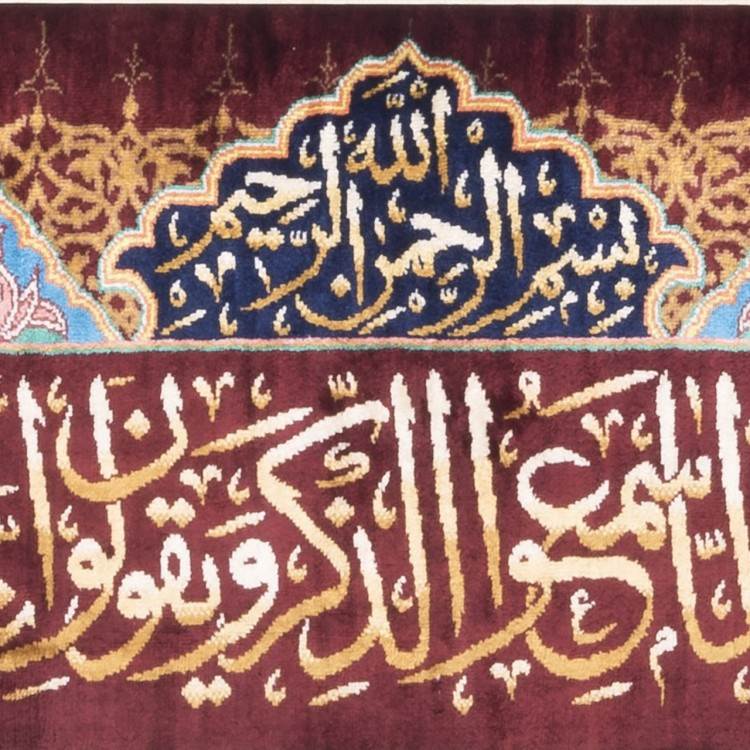 بسم الله الرحمن الرحيم
لما سمعوا الذكر ويقولون ا